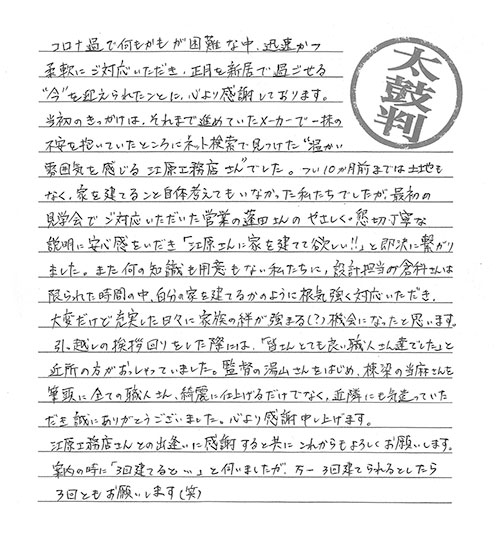 コロナ過で何もかもが困難な中、迅速かつ
柔軟にご対応いただき、正月を新居で過ごせる
"今"を迎えられたことに、心より感謝しております。
当初のきっかけは、それまで進めていたメーカーで一抹の
不安を抱いていたところにネット検索で見つけた"温かい
雰囲気を感じる江原工務店さん"でした。つい10ヵ月前までは土地も
なく、家を建てること自体考えてもいなかった私たちでしたが、最初の
見学会でご対応いただいた営業の蓬田さんのやさしく、懇切丁寧な
説明に安心感をいだき「江原さんに家を建てて欲しい!!」と即決に繋がり
ました。また何の知識も用意もない私たちに、設計担当の倉科さんは
限られた時間の中、自分の家を建てるかのように根気強く対応いただき、
大変だけど充実した日々に家族の絆が強まる(?)機会になったと思います。
引っ越しの挨拶回りをした際には、「皆さんとても良い職人さん達でした」と
近所の方がおっしゃっていました。監督の湯山さんをはじめ、棟梁の当麻さんを
筆頭に全ての職人さん、綺麗に仕上げるだけでなく、近隣にも気遣っていた
だき誠にありがとうございました。心より感謝申し上げます。
江原工務店さんとの出逢いに感謝すると共にこれからもよろしくお願いします。
案内の時に「3回建てると…」と伺いましたが、万一3回建てられるとしたら
3回ともお願いします(笑)
太鼓判